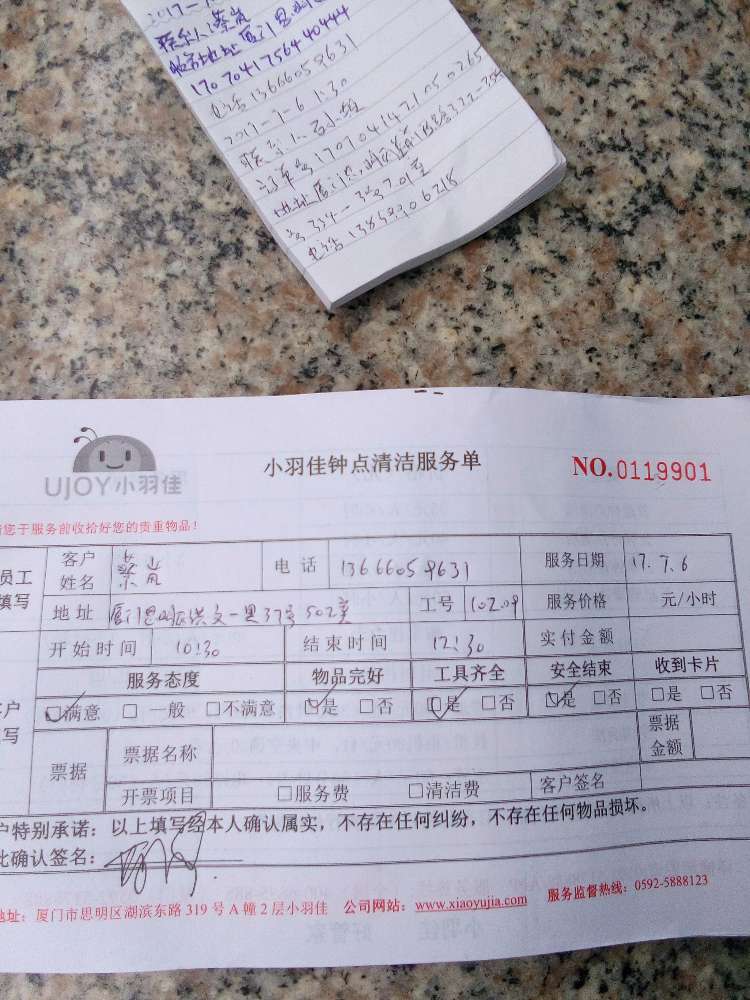 2017-
联系人:蔡岚
收货地址 厦门思明
1707041756440444
电话 13666059631
2017-7-6 1:30
联系人
订单号
地址 厦门思明
号334-3号701室
电话
UJOY小羽佳
小羽佳钟点清洁服务单
NO.0119901
请您于服务前收拾好您的贵重物品!
员工填写 客户姓名 蔡岚 电话 13666059631 服务日期 17.7.6
地址 厦门思明区洪文一里37号502室 工号 10209 服务价格 元/小时
开始时间 10:30 结束时间 12:30 实付金额
服务态度 物品完好 工具齐全 安全结束 收到卡片
客户填写 ☑满意 □一般 □不满意 ☑是 □否 ☑是 □否 ☑是 □否 □是 □否
票据 票据名称 票据金额
开票项目 □服务费 □清洁费 客户签名
户特别承诺:以上填写经本人确认属实,不存在任何纠纷,不存在任何物品损坏。
此确认签名:
地址:厦门市思明区湖滨东路319号A幢2层小羽佳 公司网站:www.xiaoyujia.com 服务监督热线:0592-5888123